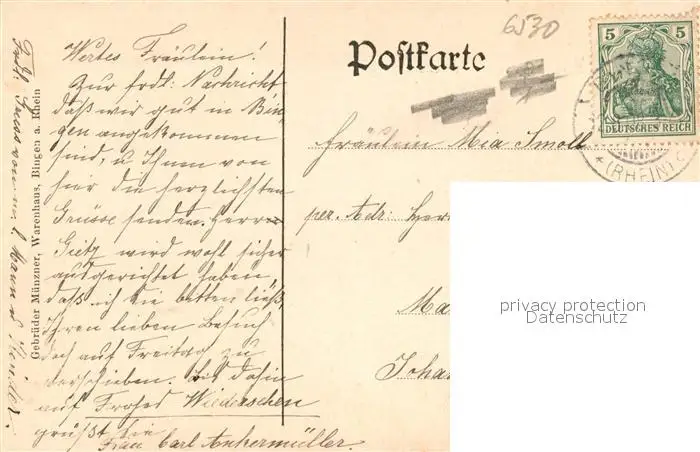 6530
Postkarte
5 5
DEUTSCHES REICH
* (RHEIN)
Wertes Fräulein!
Zur frdl. Nachricht
daß wir gut in Bin-
gen angekommen
sind, u Ihnen von
hier die herzlichsten
Grüsse senden. Herr
Gietz wird wohl sicher
ausgerichtet haben,
daß ich Sie bitten ließ,
Ihren lieben Besuch
doch auf Freitag zu
verschieben. Bis dahin
auf Frohes Wiedersehen
grüßt Sie
Frau Carl Ankermüller.
Gruss von m. Mann u Kinder.
Gebrüder Münzner, Warenhaus, Bingen a. Rhein
Fräulein Mia Smoll
per. Adr: Her
Ma
Joha
privacy protection
Datenschutz